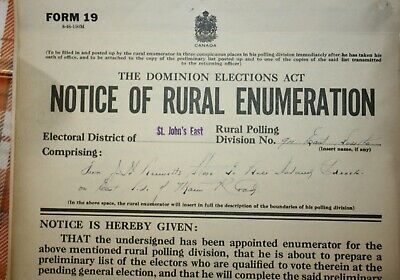 FORM 19
CANADA
(To be filled in and posted up by the rural enumerator in three conspicuous places in his polling division immediately after he has taken his
oath of office, and to be attached to the copy of the preliminary list posted up and to one of the copies of the said list transmitted
to the returning officer)
THE DOMINION ELECTIONS ACT
NOTICE OF RURAL ENUMERATION
Electoral District of St. John's East Rural Polling
Division No. East
(Insert name, if any)
Comprising:
From Store to
on East side of Main Road
(In the above space, the rural enumerator will insert in full the description of the boundaries of his polling division)
NOTICE IS HEREBY GIVEN:
THAT the undersigned has been appointed enumerator for the
above mentioned rural polling division, that he is about to prepare a
preliminary list of the electors who are qualified to vote therein at the
pending general election, and that he will complete the said preliminary